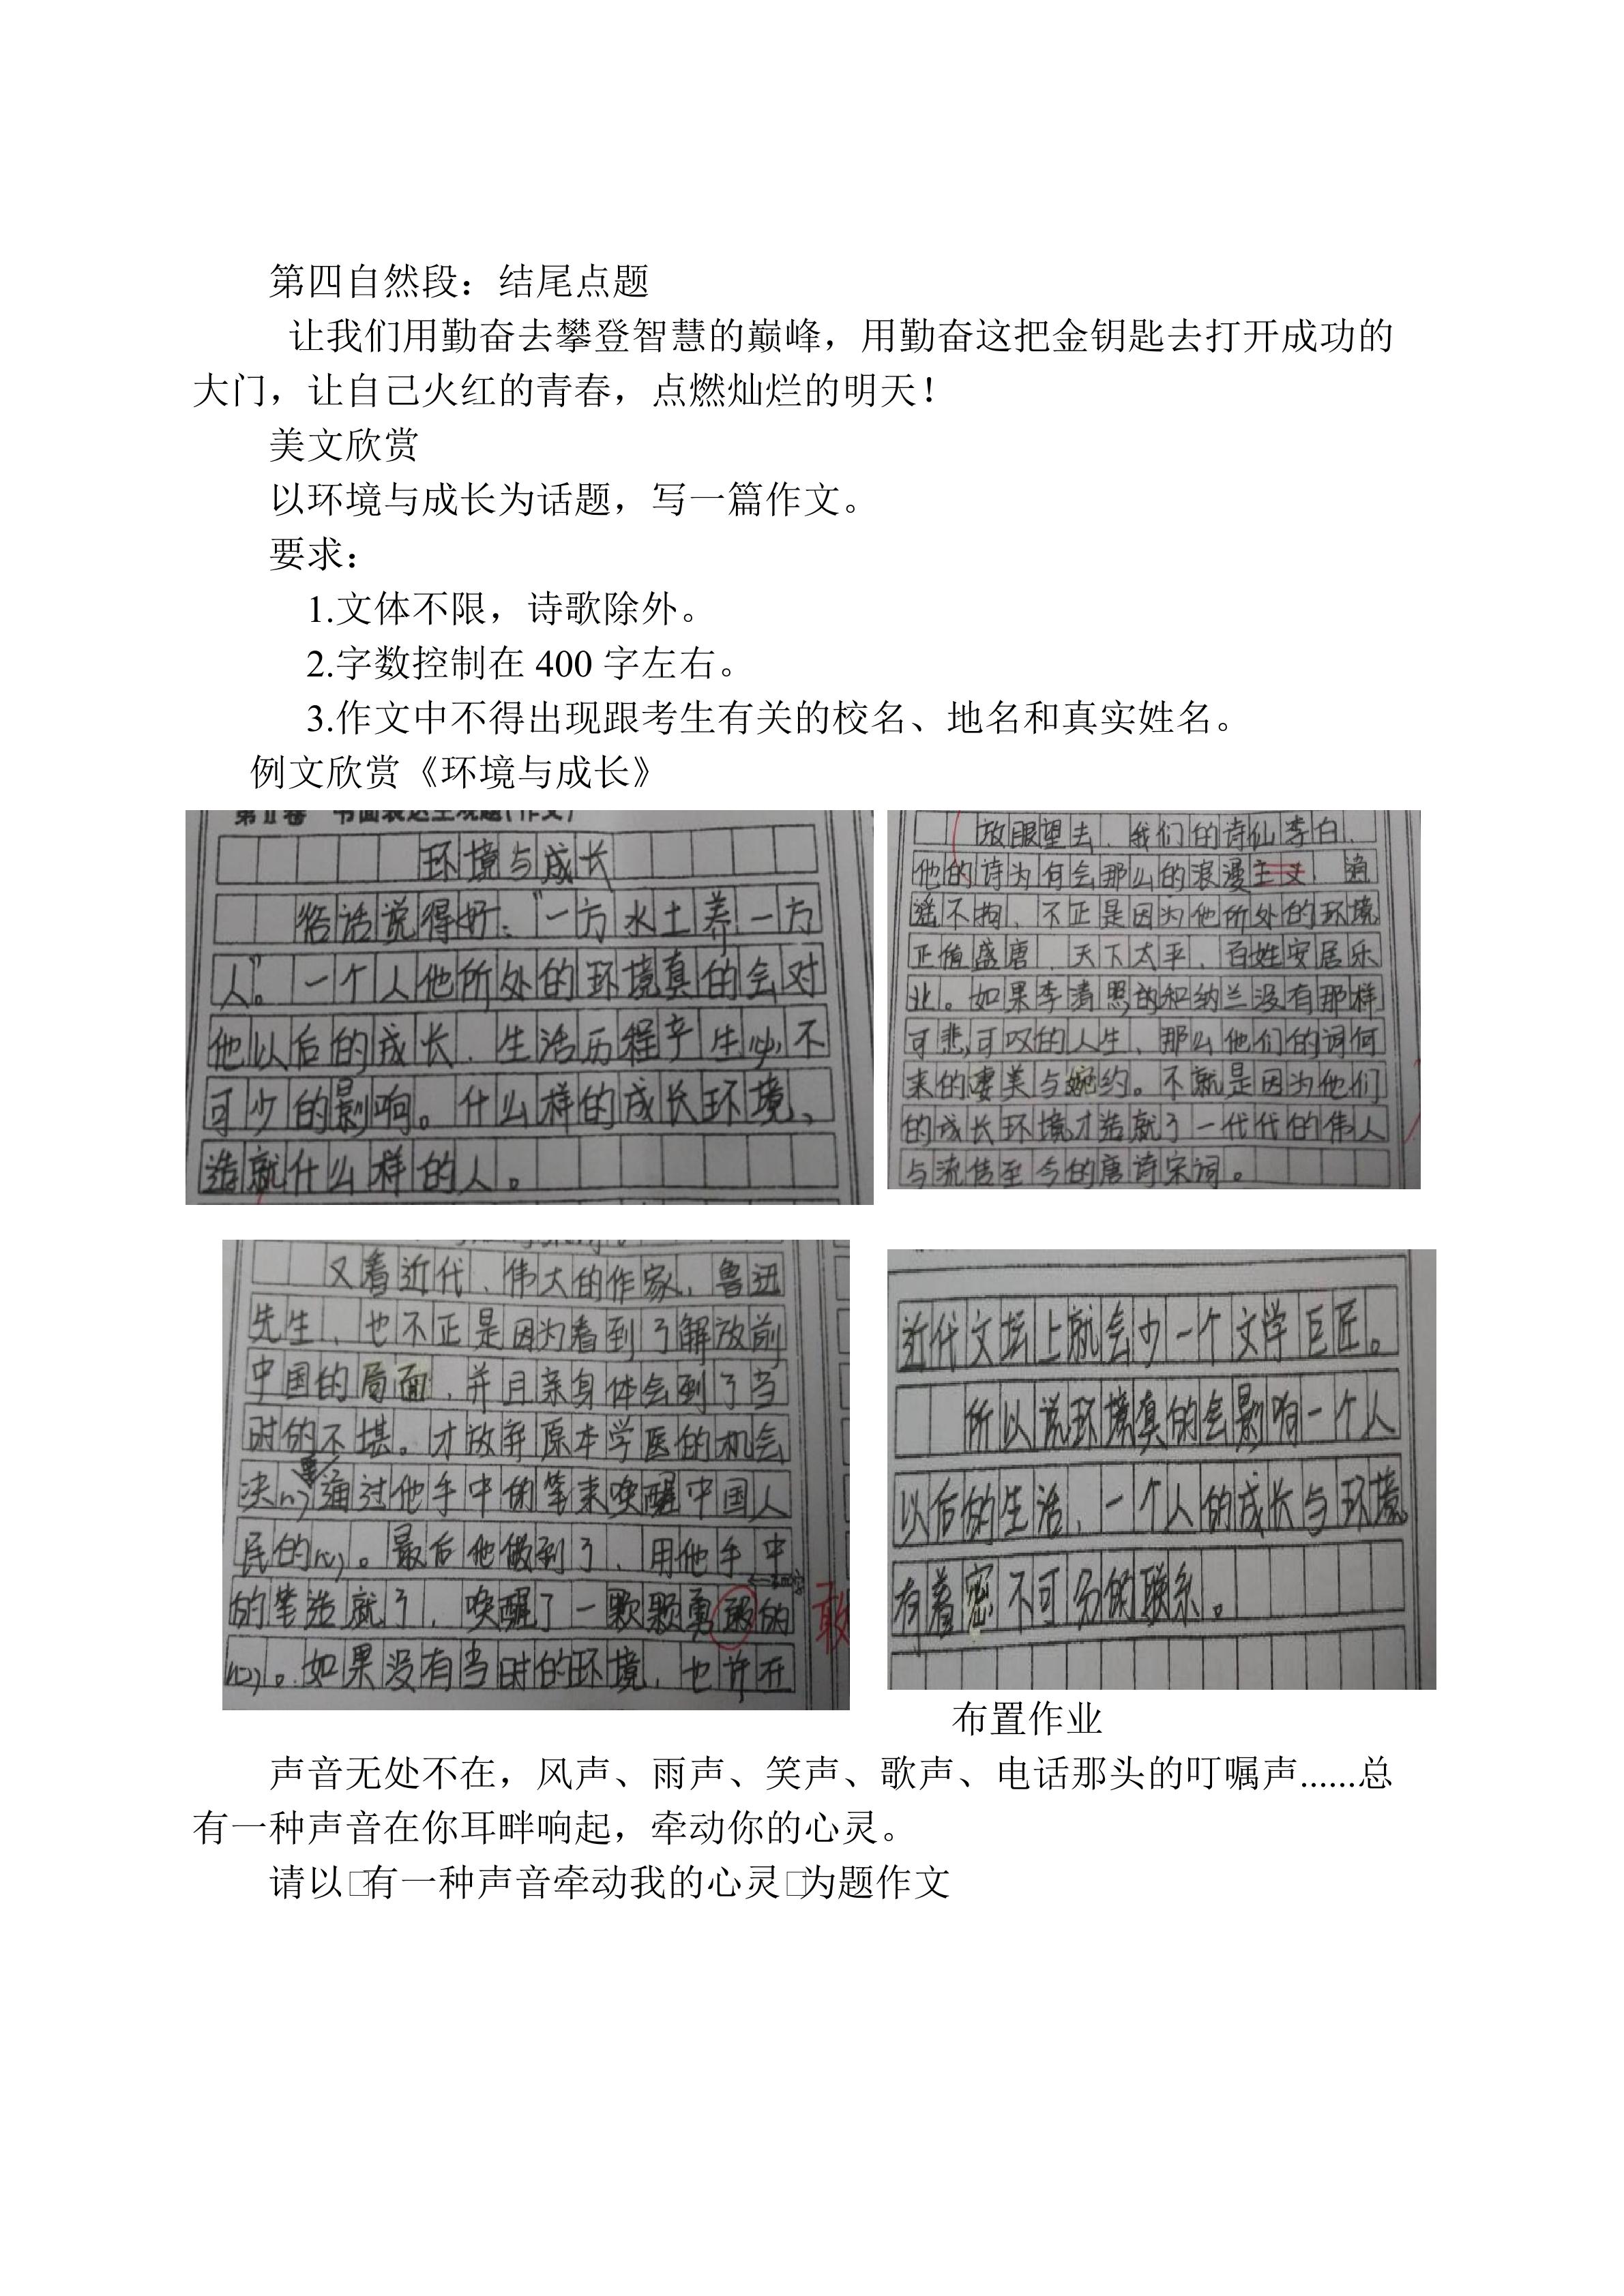 第四自然段：结尾点题
让我们用勤奋去攀登智慧的巅峰，用勤奋这把金钥匙去打开成功的
大门，让自己火红的青春，点燃灿烂的明天！
美文欣赏
以环境与成长为话题，写一篇作文。
要求：
1.文体不限，诗歌除外。
2.字数控制在 400 字左右。
3.作文中不得出现跟考生有关的校名、地名和真实姓名。
例文欣赏《环境与成长》
第Ⅱ卷 书面表达主观题(作文)
环境与成长
俗话说得好："一方水土养一方
人"。一个人他所处的环境真的会对
他以后的成长、生活历程产生必不
可少的影响。什么样的成长环境、
造就什么样的人。
放眼望去、我们的诗仙李白、
他的诗为何会那么的浪漫主义、逍
遥不拘、不正是因为他所处的环境
正值盛唐、天下太平、百姓安居乐
业。如果李清照的和纳兰没有那样
可悲,可叹的人生、那么他们的词何
来的凄美与婉约。不就是因为他们
的成长环境才造就了一代代的伟人
与流传至今的唐诗宋词。
又看近代、伟大的作家、鲁迅
先生、也不正是因为看到了解放前
中国的局面、并且亲身体会到了当
时的不堪。才放弃原本学医的机会
决心要通过他手中的笔来唤醒中国人
民的心。最后他做到了、用他手中
的笔造就了、唤醒了一颗颗勇敢的
心。如果没有当时的环境、也许在
敢
近代文坛上就会少一个文学巨匠。
所以说环境真的会影响一个人
以后的生活、一个人的成长与环境
有着密不可分的联系。
布置作业
声音无处不在，风声、雨声、笑声、歌声、电话那头的叮嘱声......总
有一种声音在你耳畔响起，牵动你的心灵。
请以有一种声音牵动我的心灵为题作文